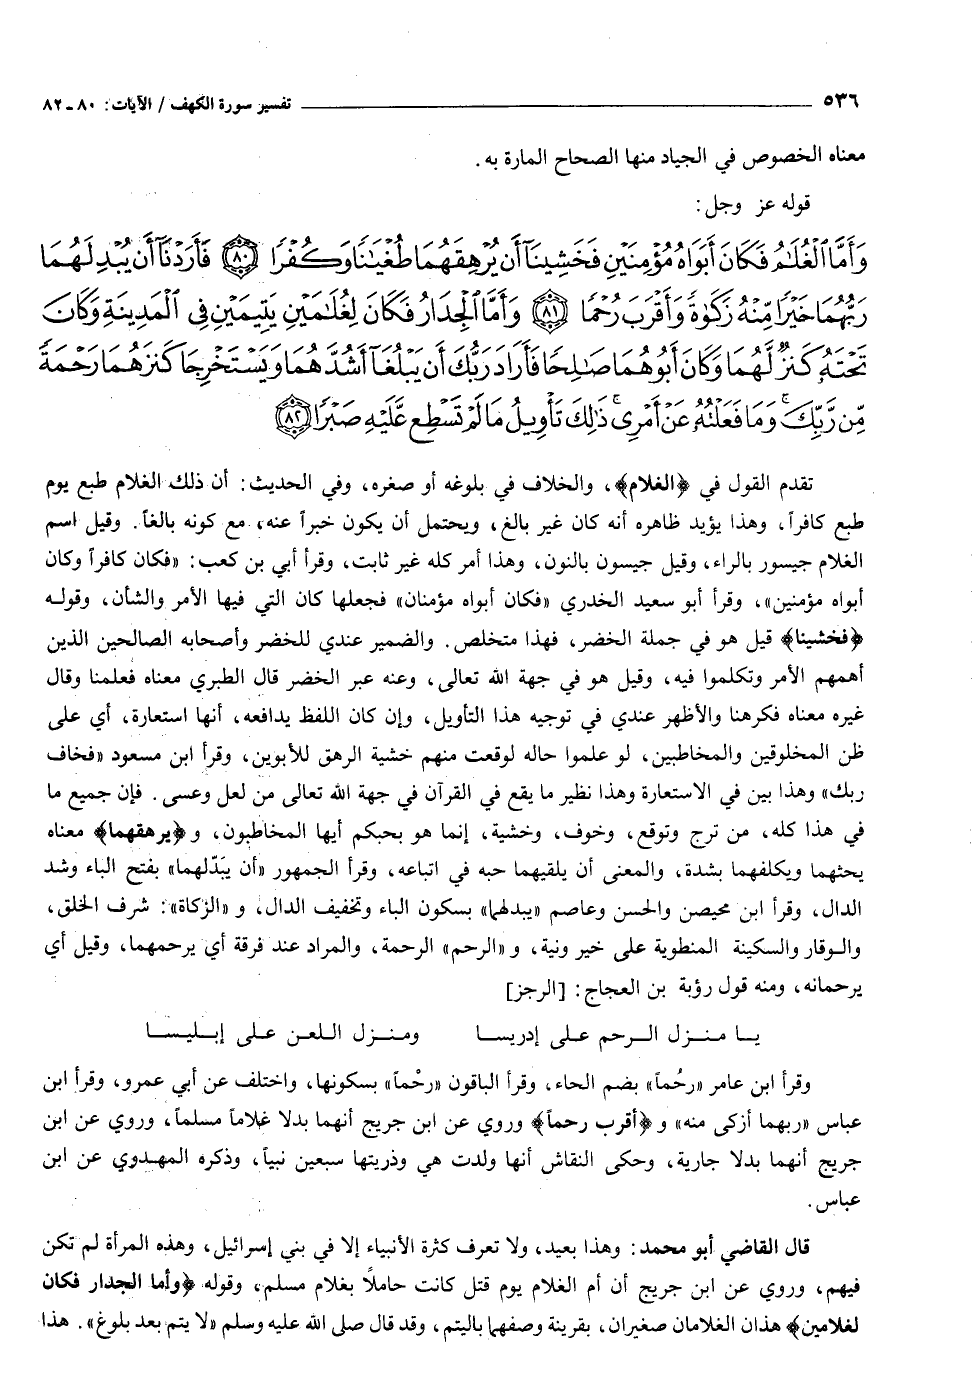 ٥٣٦ ــــــــــ تفسير سورة الكهف / الآيات: ٨٠ ـ ٨٢
معناه الخصوص في الجياد منها الصحاح المارة به.
قوله عز وجل:
وَأَمَّا ٱلْغُلَٰمُ فَكَانَ أَبَوَاهُ مُؤْمِنَيْنِ فَخَشِينَآ أَن يُرْهِقَهُمَا طُغْيَٰنًا وَكُفْرًا ﴿٨٠﴾ فَأَرَدْنَآ أَن يُبْدِلَهُمَا
رَبُّهُمَا خَيْرًا مِّنْهُ زَكَوٰةً وَأَقْرَبَ رُحْمًا ﴿٨١﴾ وَأَمَّا ٱلْجِدَارُ فَكَانَ لِغُلَٰمَيْنِ يَتِيمَيْنِ فِى ٱلْمَدِينَةِ وَكَانَ
تَحْتَهُۥ كَنزٌ لَّهُمَا وَكَانَ أَبُوهُمَا صَٰلِحًا فَأَرَادَ رَبُّكَ أَن يَبْلُغَآ أَشُدَّهُمَا وَيَسْتَخْرِجَا كَنزَهُمَا رَحْمَةً
مِّن رَّبِّكَ ۚ وَمَا فَعَلْتُهُۥ عَنْ أَمْرِى ۚ ذَٰلِكَ تَأْوِيلُ مَا لَمْ تَسْطِع عَّلَيْهِ صَبْرًا ﴿٨٢﴾
تقدم القول في ﴿الغلام﴾، والخلاف في بلوغه أو صغره، وفي الحديث: أن ذلك الغلام طبع يوم
طبع كافراً، وهذا يؤيد ظاهره أنه كان غير بالغ، ويحتمل أن يكون خبراً عنه، مع كونه بالغاً. وقيل اسم
الغلام جيسور بالراء، وقيل جيسون بالنون، وهذا أمر كله غير ثابت، وقرأ أبي بن كعب: «فكان كافراً وكان
أبواه مؤمنين»، وقرأ أبو سعيد الخدري «فكان أبواه مؤمنان» فجعلها كان التي فيها الأمر والشأن، وقوله
﴿فخشينا﴾ قيل هو في جملة الخضر، فهذا متخلص. والضمير عندي للخضر وأصحابه الصالحين الذين
أهمهم الأمر وتكلموا فيه، وقيل هو في جهة الله تعالى، وعنه عبر الخضر قال الطبري معناه فعلمنا وقال
غيره معناه فكرهنا والأظهر عندي في توجيه هذا التأويل، وإن كان اللفظ يدافعه، أنها استعارة، أي على
ظن المخلوقين والمخاطبين، لو علموا حاله لوقعت منهم خشية الرهق للأبوين، وقرأ ابن مسعود «فخاف
ربك» وهذا بين في الاستعارة وهذا نظير ما يقع في القرآن في جهة الله تعالى من لعل وعسى. فإن جميع ما
في هذا كله، من ترج وتوقع، وخوف، وخشية، إنما هو بحبكم أيها المخاطبون، و ﴿يرهقهما﴾ معناه
يحثهما ويكلفهما بشدة، والمعنى أن يلقيهما حبه في اتباعه، وقرأ الجمهور «أن يبَدّلهما» بفتح الباء وشد
الدال، وقرأ ابن محيصن والحسن وعاصم «يبدلهما» بسكون الباء وتخفيف الدال، و «الزكاة»: شرف الخلق،
والوقار والسكينة المنطوية على خير ونية، و «الرحم» الرحمة، والمراد عند فرقة أي يرحمهما، وقيل أي
يرحمانه، ومنه قول رؤبة بن العجاج: [الرجز]
يا منزل الرحم على إدريسا ومنزل اللعن على إبليسا
وقرأ ابن عامر «رحُماً» بضم الحاء، وقرأ الباقون «رحْماً» بسكونها، واختلف عن أبي عمرو، وقرأ ابن
عباس «ربهما أزكى منه» و ﴿أقرب رحماً﴾ وروي عن ابن جريج أنهما بدلا غلاماً مسلماً، وروي عن ابن
جريج أنهما بدلا جارية، وحكى النقاش أنها ولدت هي وذريتها سبعين نبياً، وذكره المهدوي عن ابن
عباس.
قال القاضي أبو محمد: وهذا بعيد، ولا تعرف كثرة الأنبياء إلا في بني إسرائيل، وهذه المرأة لم تكن
فيهم، وروي عن ابن جريج أن أم الغلام يوم قتل كانت حاملاً بغلام مسلم، وقوله ﴿وأما الجدار فكان
لغلامين﴾ هذان الغلامان صغيران، بقرينة وصفهما باليتم، وقد قال صلى الله عليه وسلم «لا يتم بعد بلوغ». هذا